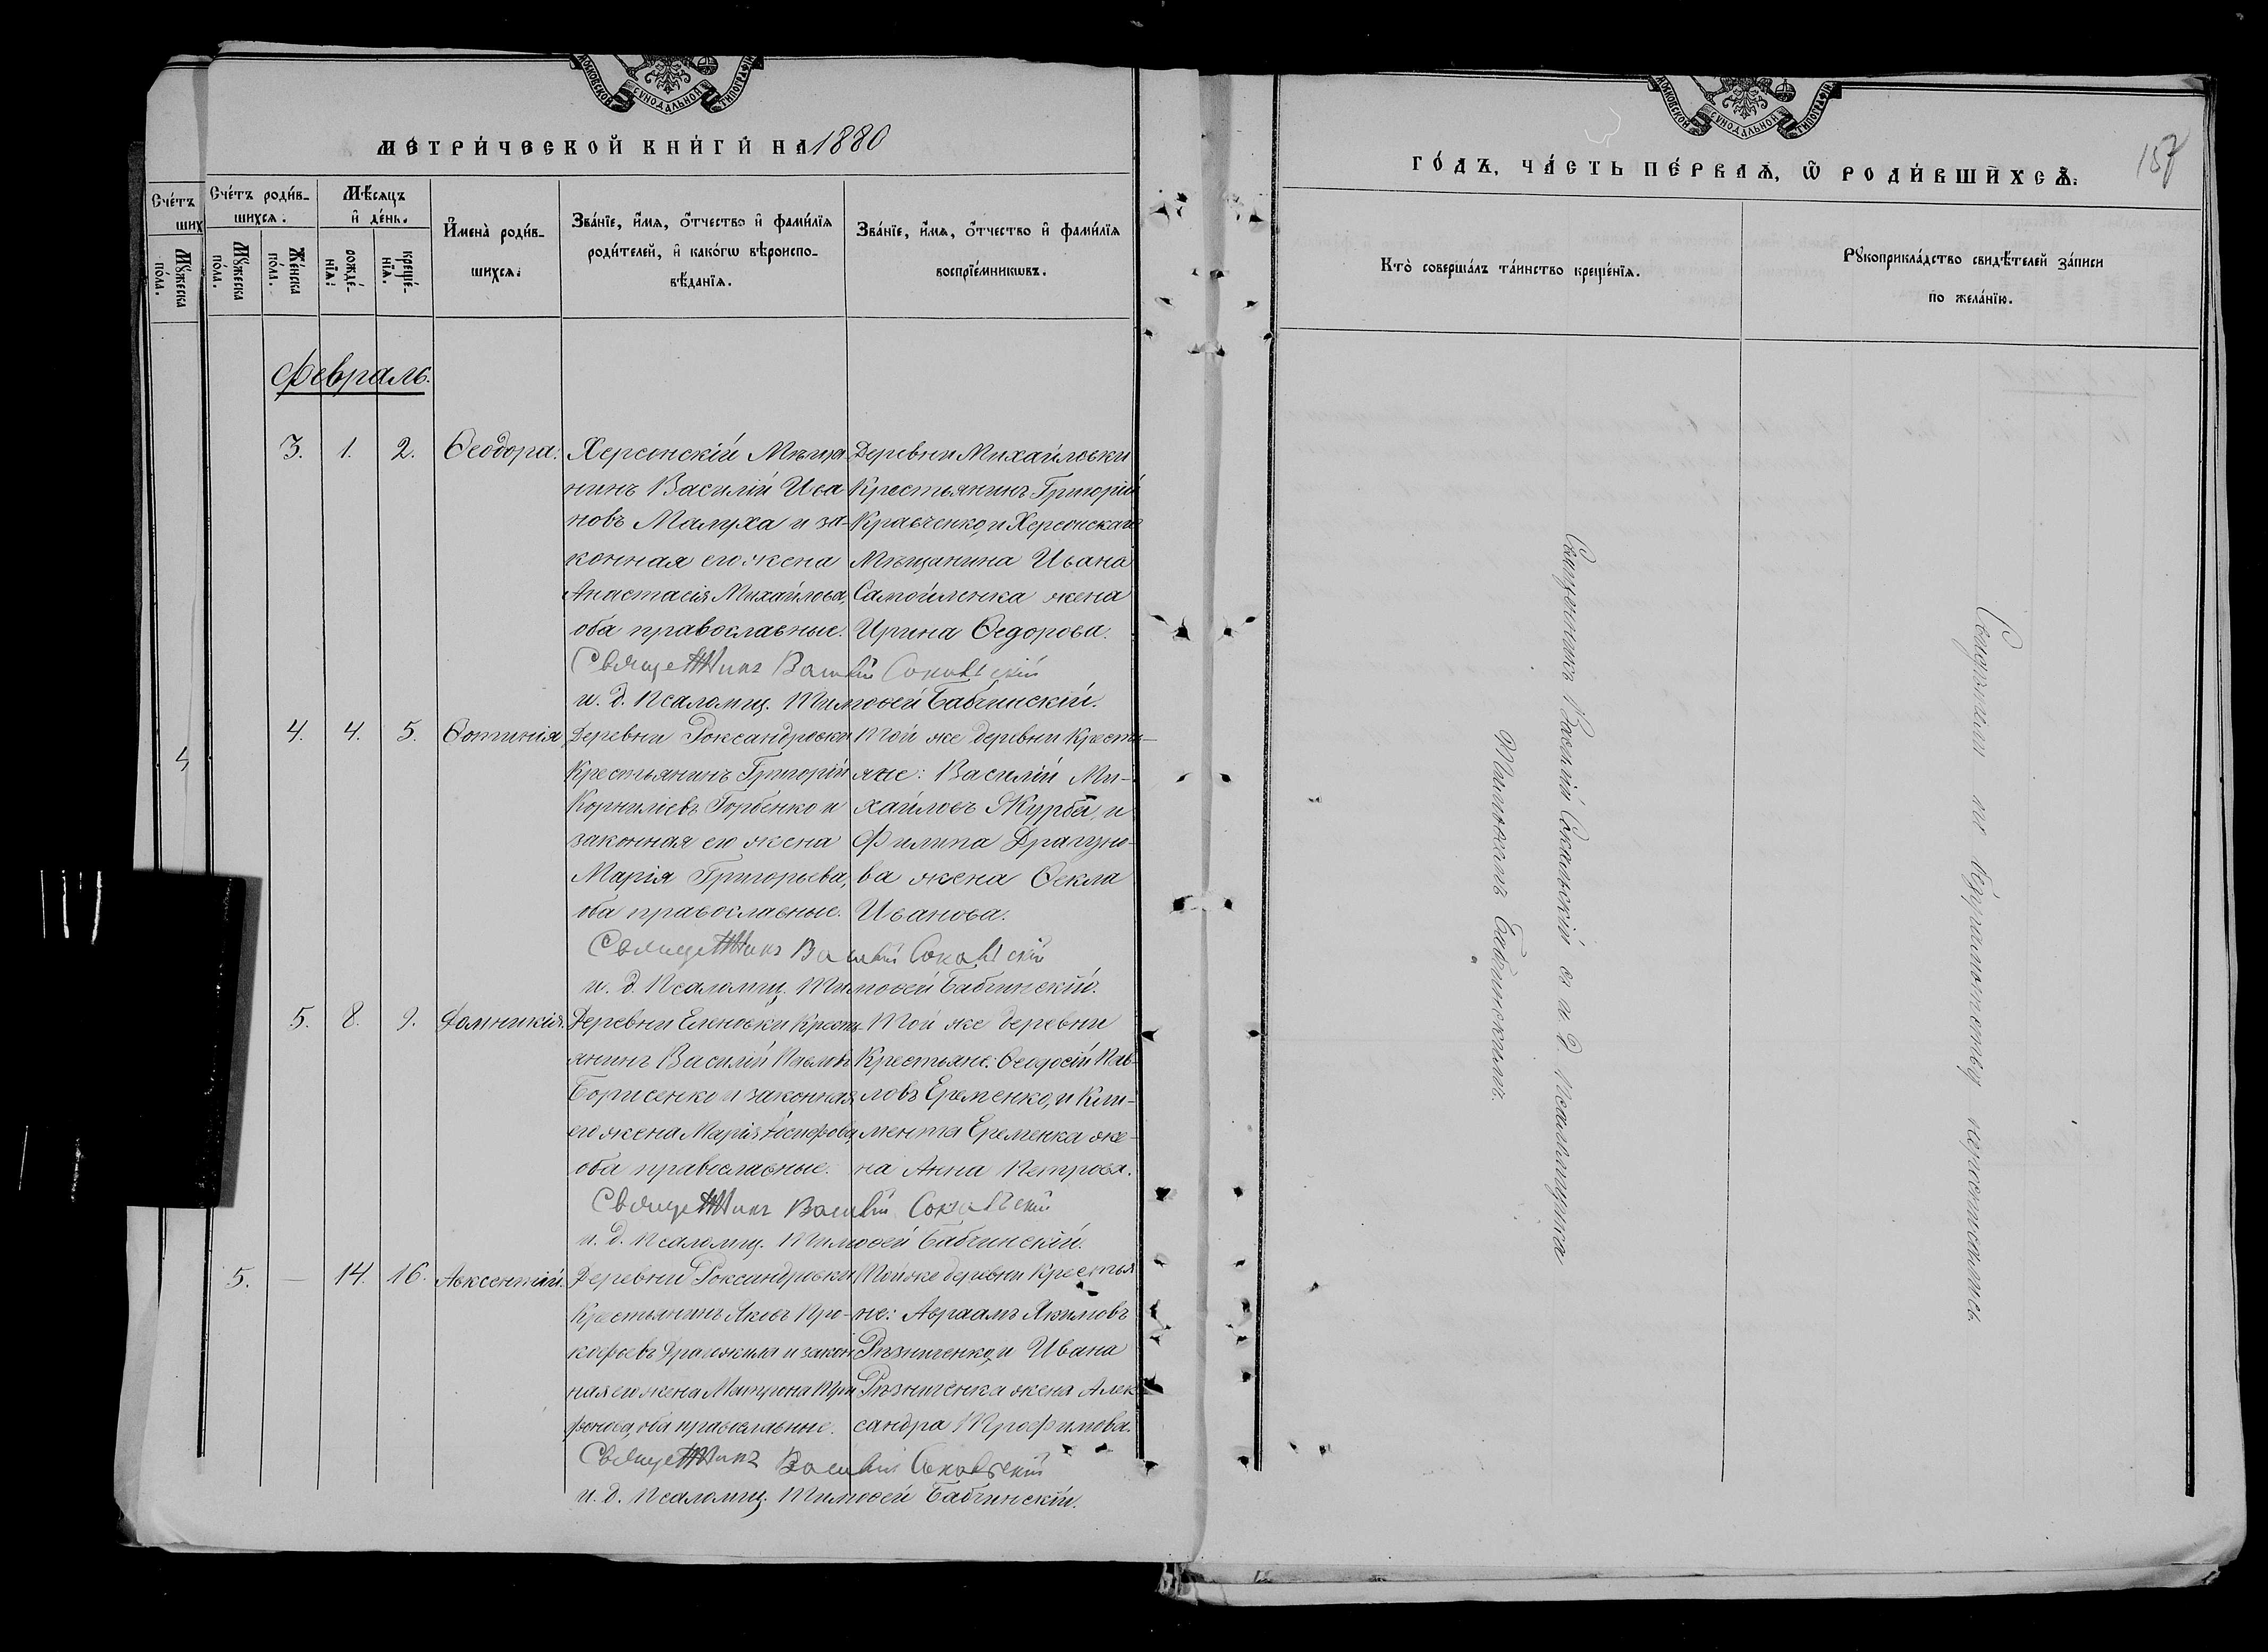 МОСКОВСКОЙ СУНОДАЛЬНОЙ ТИПОГРАФІИ
МЕТРИ́ЧЕСКОЙ КНИ́ГИ НА 1880
Сче́тъ
ших
Мꙋ́жеска по́ла.
Сче́тъ роди́в-
шихсѧ.
Мꙋ́жеска по́ла.
Же́нска по́ла.
Мѣ́сѧцъ
и҆ де́нь.
рожде́-
нїѧ.
креще́-
нїѧ.
И҆мена̀ роди́в-
шихсѧ.
Зва́нїе, и҆́мѧ, ѻ҆́тчество и҆ фами́лїѧ
роди́телей, и҆ како́гѡ вѣроиспо-
вѣ́данїѧ.
Зва́нїе, и҆́мѧ, ѻ҆́тчество и҆ фами́лїѧ
воспрїе́мникѡвъ.
Февраль.
3. 1. 2. Ѳеодора.
Херсонскій Мѣща-
нинъ Василій Ива
новъ Малуха и за-
конная его жена
Анастасія Михайлова,
оба православные.
Деревни Михайловки
Крестьянинъ Григорій
Кравченко, и Херсонскаго
Мѣщанина Ивана
Самойленка жена
Ирина Ѳедорова.
Священникъ Василій Сокальскій
и. д. Псаломщ. Тимоѳей Бабчинскій.
4
4. 4. 5. Фотинія,
Деревни Роксандровки
Крестьянинъ Григорій
Корниліевъ Горбенко и
законная его жена
Марія Григорьева,
оба православные.
Той же деревни Кресть-
яне: Василій Ми-
хайловъ Журба, и
Филипа Драгуно-
ва жена Ѳекла
Иванова.
Священникъ Василій Сокальскій
и. д. Псаломщ. Тимоѳей Бабчинскій.
5. 8. 9. Домникія.
Деревни Еленовки Кресть-
янинъ Василій Павловъ
Борисенко и законная
его жена Марія Іосифова,
оба православные.
Той же деревни
Крестьяне: Ѳеодосій Пав-
ловъ Еременко, и Кли-
мента Еременка же-
на Анна Петрова.
Священникъ Василій Сокальскій
и. д. Псаломщ. Тимоѳей Бабчинскій.
5. — 14. 16. Авксентій.
Деревни Роксандровки
Крестьянинъ Яковъ Про-
кофьевъ и закон
ная его жена Матрона Три
фонова, оба православные.
Той же деревни Крестья
не: Авраамъ Якимовъ
Рѣзниченко, и Ивана
Рѣзниченка жена Алек
сандра Трофимова.
Священникъ Василій Сокальскій
и. д. Псаломщ. Тимоѳей Бабчинскій.
МОСКОВСКОЙ СУНОДАЛЬНОЙ ТИПОГРАФІИ
157
ГО́ДЪ, ЧА́СТЬ ПЕ́РВАѦ, Ѡ҆ РОДИ́ВШИХСѦ.
Кто̀ соверша́лъ та́инство креще́нїѧ.
Рꙋкоприкла́дство свидѣ́телей за́писи
по жела́нїю.
Священникъ Василій Сокальскій съ и. д. Псаломщика
Тимоѳеемъ Бабчинскимъ.
Свидѣтели по безграмотству неросписались.